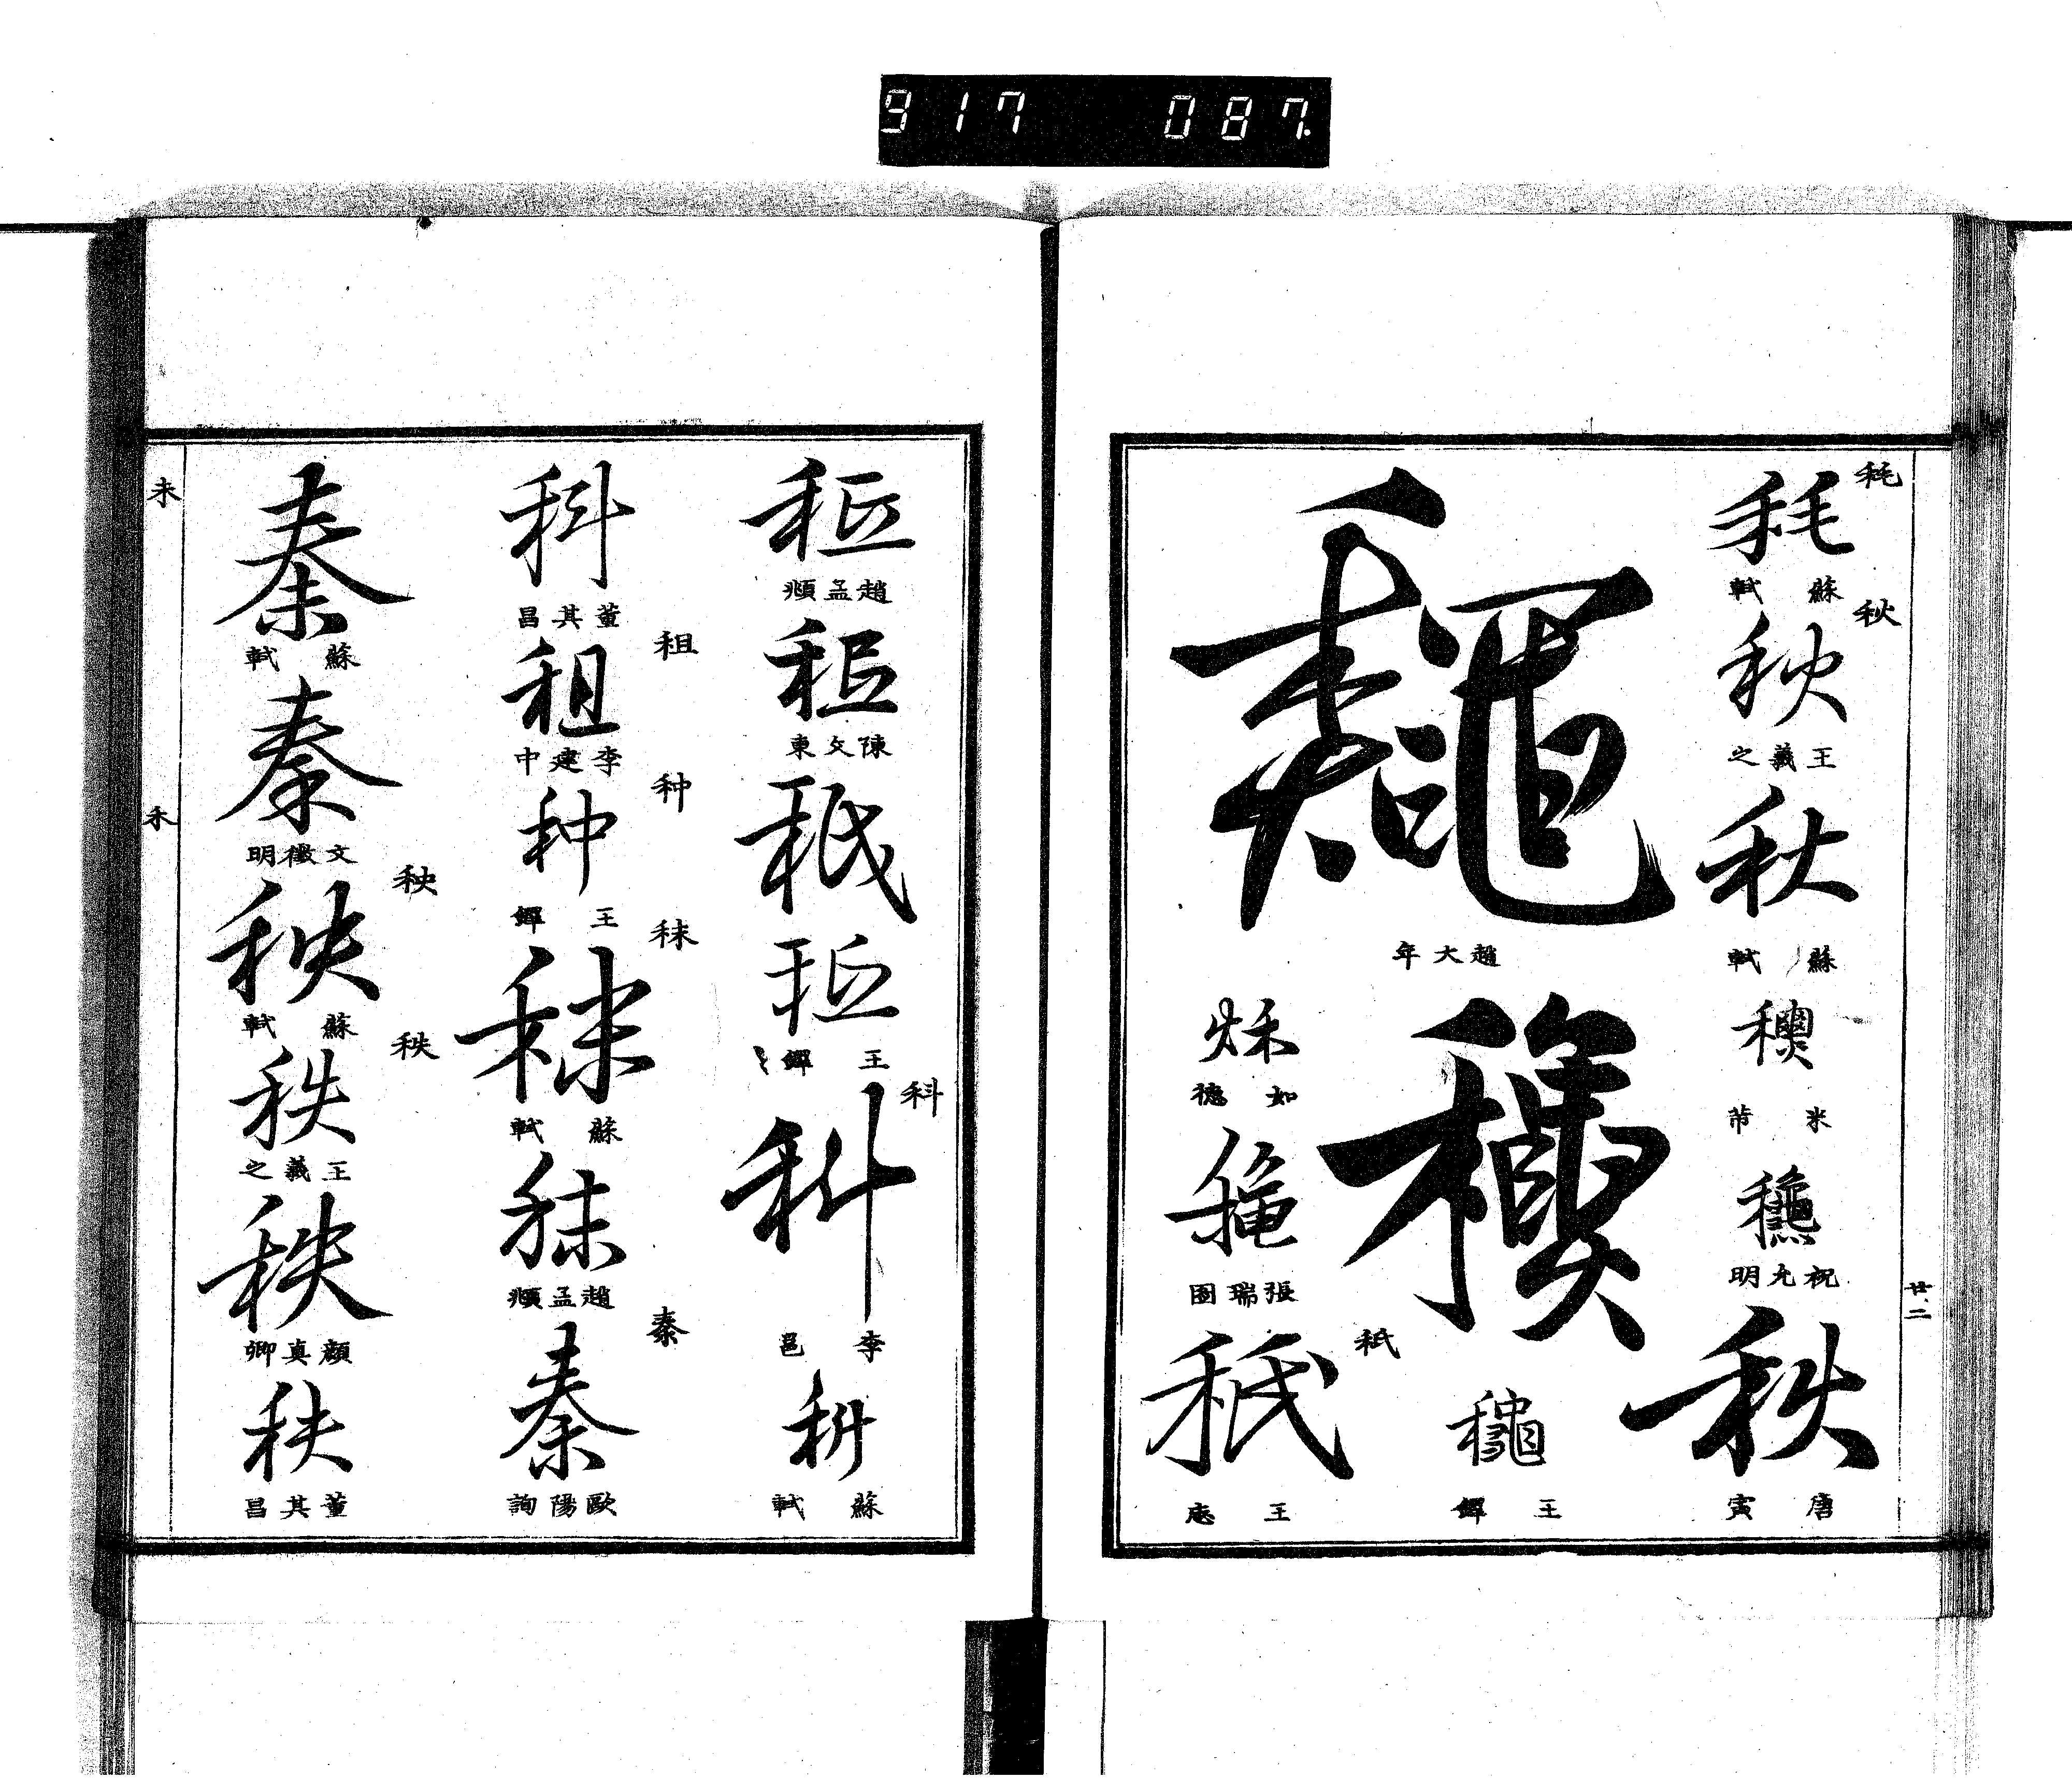 917 087
秏
秏
蘇軾
秋
秋
王羲之
秋
蘇軾
米芾
祝允明
秋
唐寅
趙大年
王鐸
秌
如德
張瑞圖
秖
秖
王寵
廿二
趙孟頫
陳文東
秖
王鐸
科
科
李邕
科
蘇軾
科
董其昌
租
租
李建中
种
种
王鐸
秣
秣
蘇軾
秣
趙孟頫
秦
秦
歐陽詢
秦
蘇軾
秦
文徵明
秧
秧
蘇軾
秩
秩
王羲之
秩
顏真卿
秩
董其昌
禾